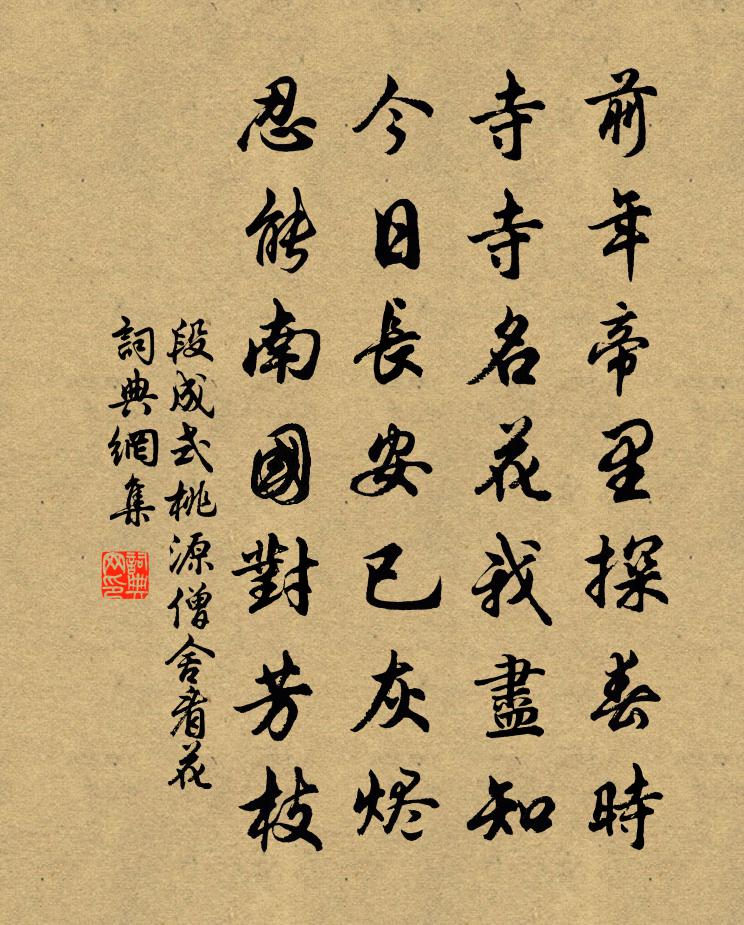 前年帝里探春時
寺寺名花我盡知
今日長安已灰烬
忍能南國對芳枝
段成式桃源僧舍看花
詞典網集
詞典網印